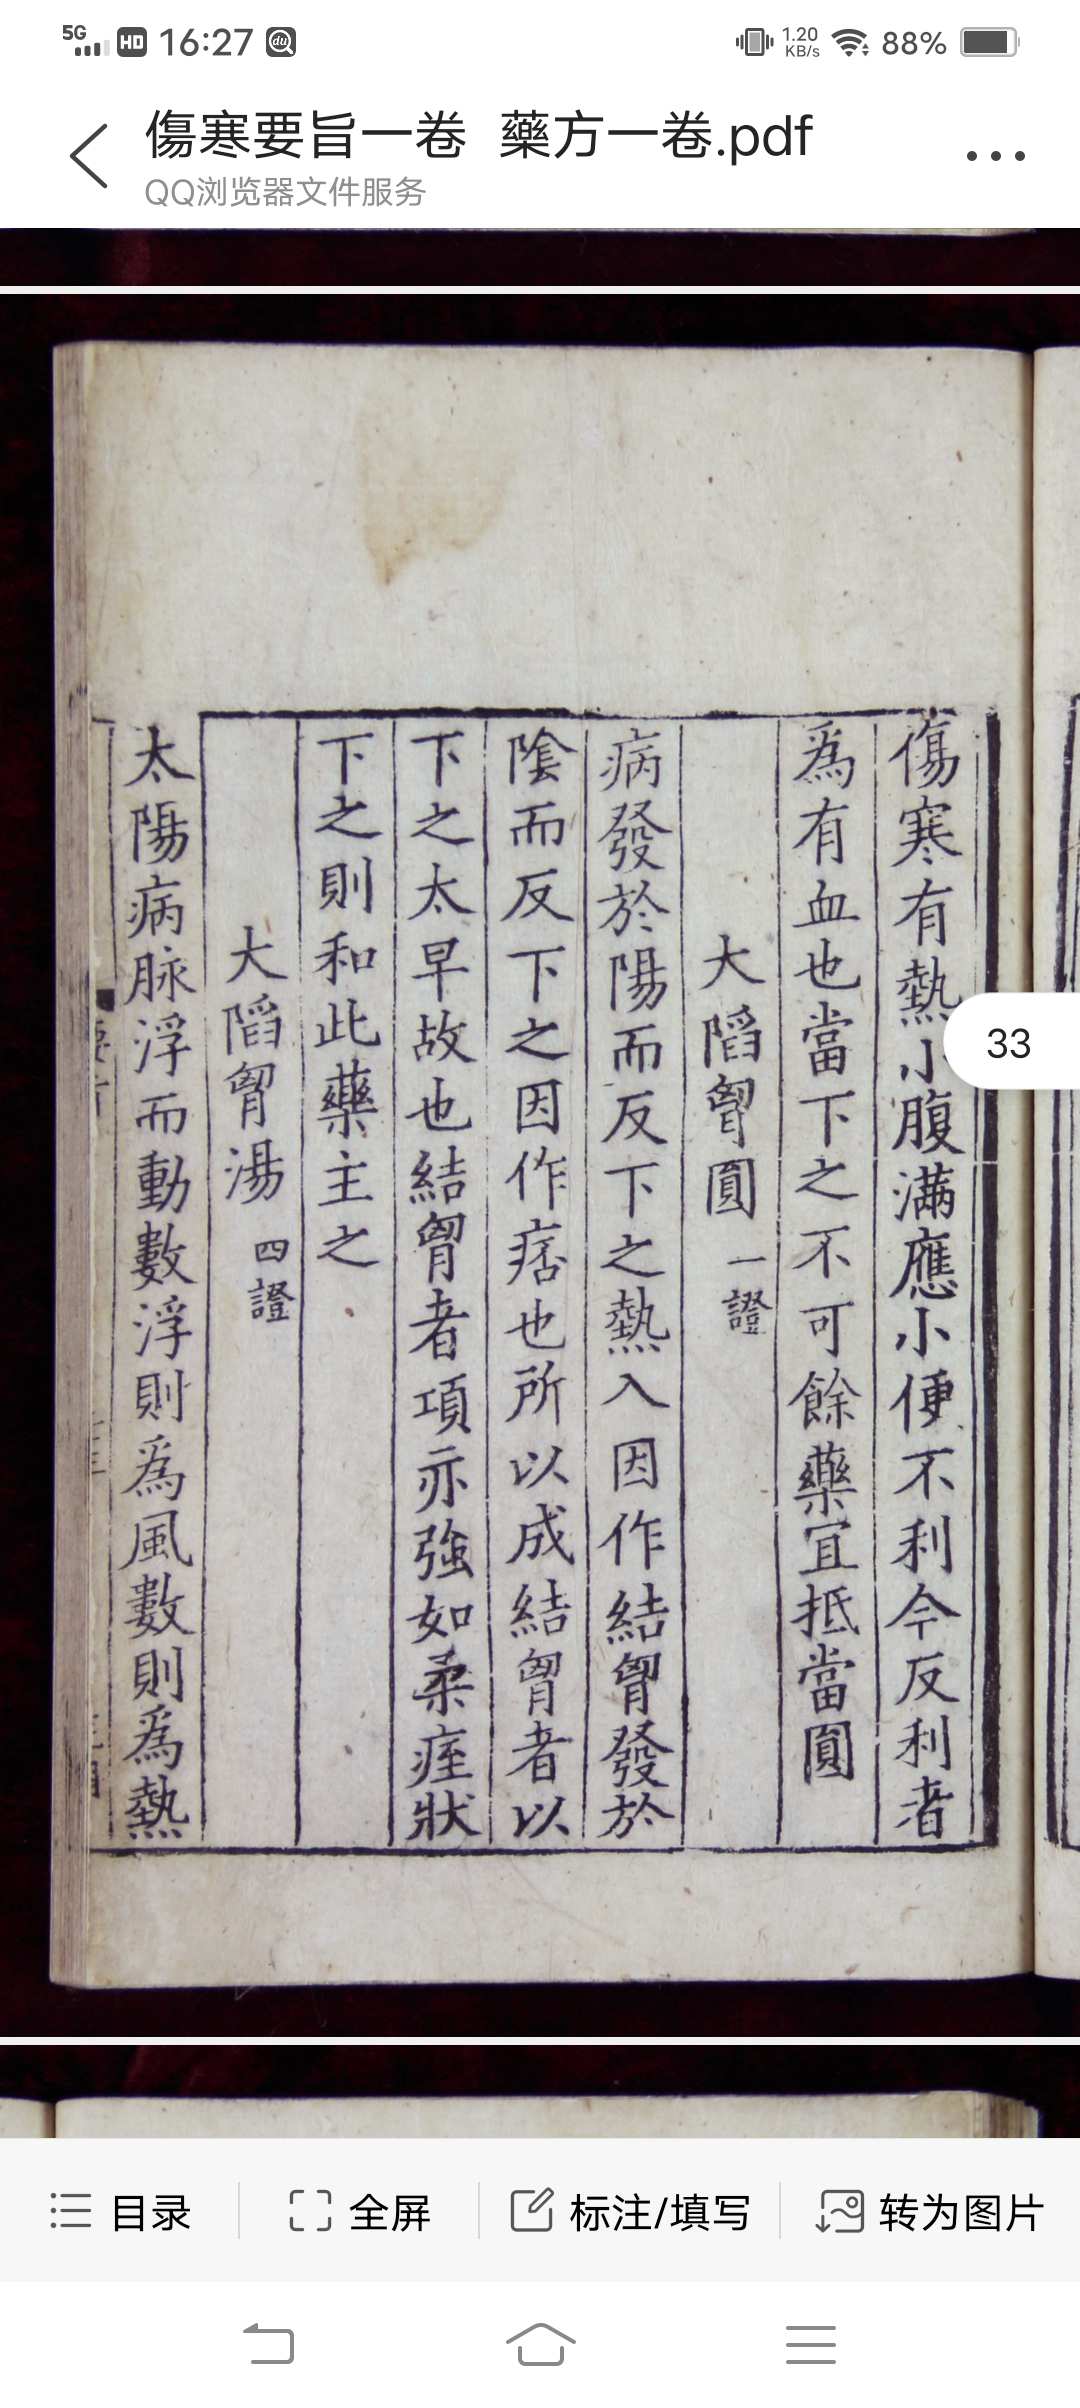 5G HD 16:27 du 1.20 KB/s 88%
傷寒要旨一卷 藥方一卷.pdf
QQ浏览器文件服务
傷寒有熱小腹滿應小便不利今反利者
爲有血也當下之不可餘藥宜抵當圓
大䧟胷圓 一證
病發於陽而反下之熱入因作結胷發於
陰而反下之因作痞也所以成結胷者以
下之太早故也結胷者項亦強如柔痓狀
下之則和此藥主之
大䧟胷湯 四證
太陽病脉浮而動數浮則爲風數則爲熱
33
目录
全屏
标注/填写
转为图片